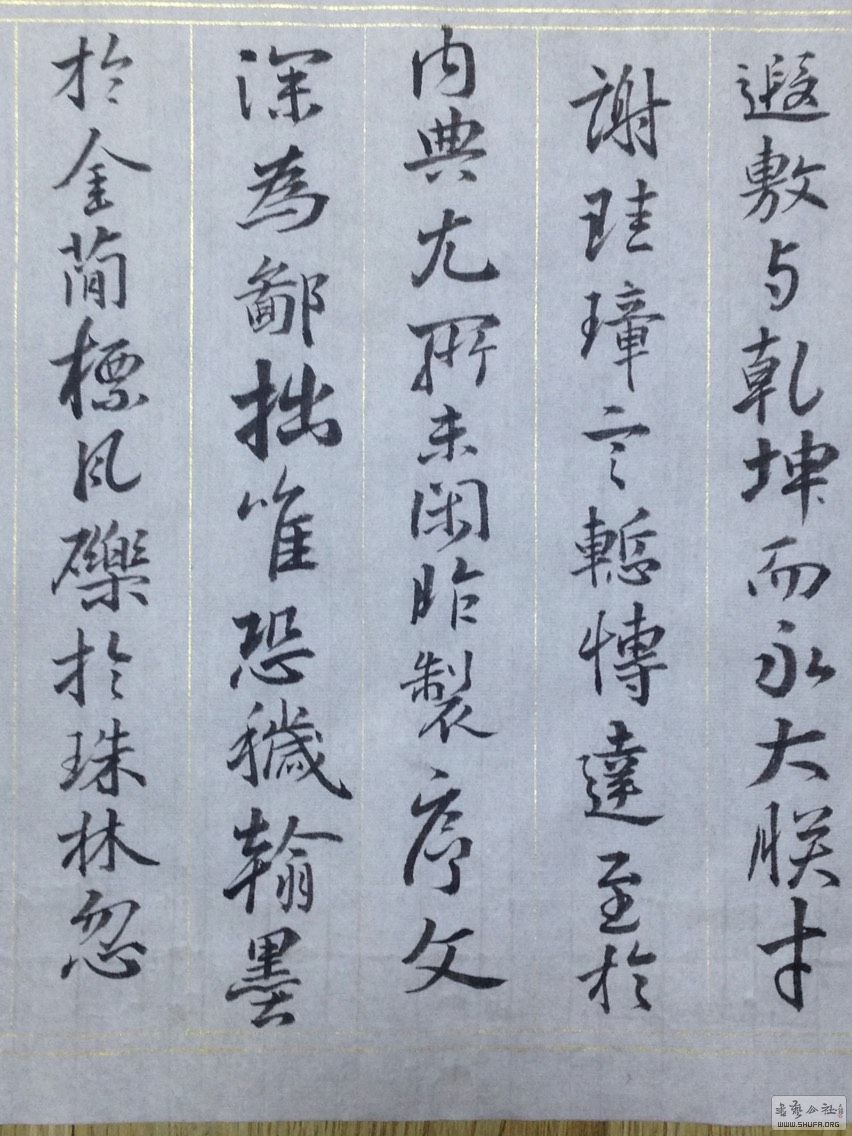 遐敷与乾坤而永大朕才
謝珪璋言慙博達至於
内典尤所未閑昨製序文
深為鄙拙唯恐穢翰墨
於金簡標瓦礫於珠林忽
書藝公社
WWW.SHUFA.ORG